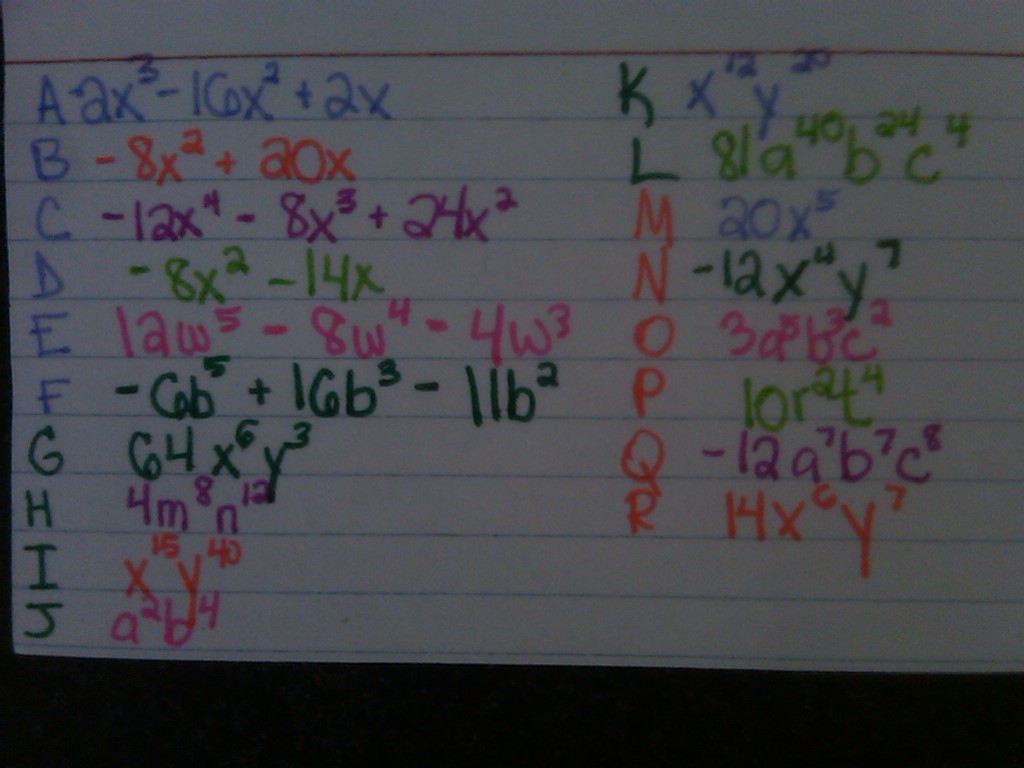 A -2x³ - 16x² + 2x
B - 8x² + 20x
C -12x⁴ - 8x³ + 24x²
D - 8x² - 14x
E 12w⁵ - 8w⁴ - 4w³
F -6b⁵ + 16b³ - 11b²
G 64x⁶y³
H 4m⁸n¹²
I x¹⁵y⁴⁰
J a²b⁴
K x¹²y²⁰
L 81a⁴⁰b²⁴c⁴
M 20x⁵
N -12x⁴y⁷
O 3a⁵b³c²
P 10r²t⁴
Q -12a⁷b⁷c⁸
R 14x⁶y⁷